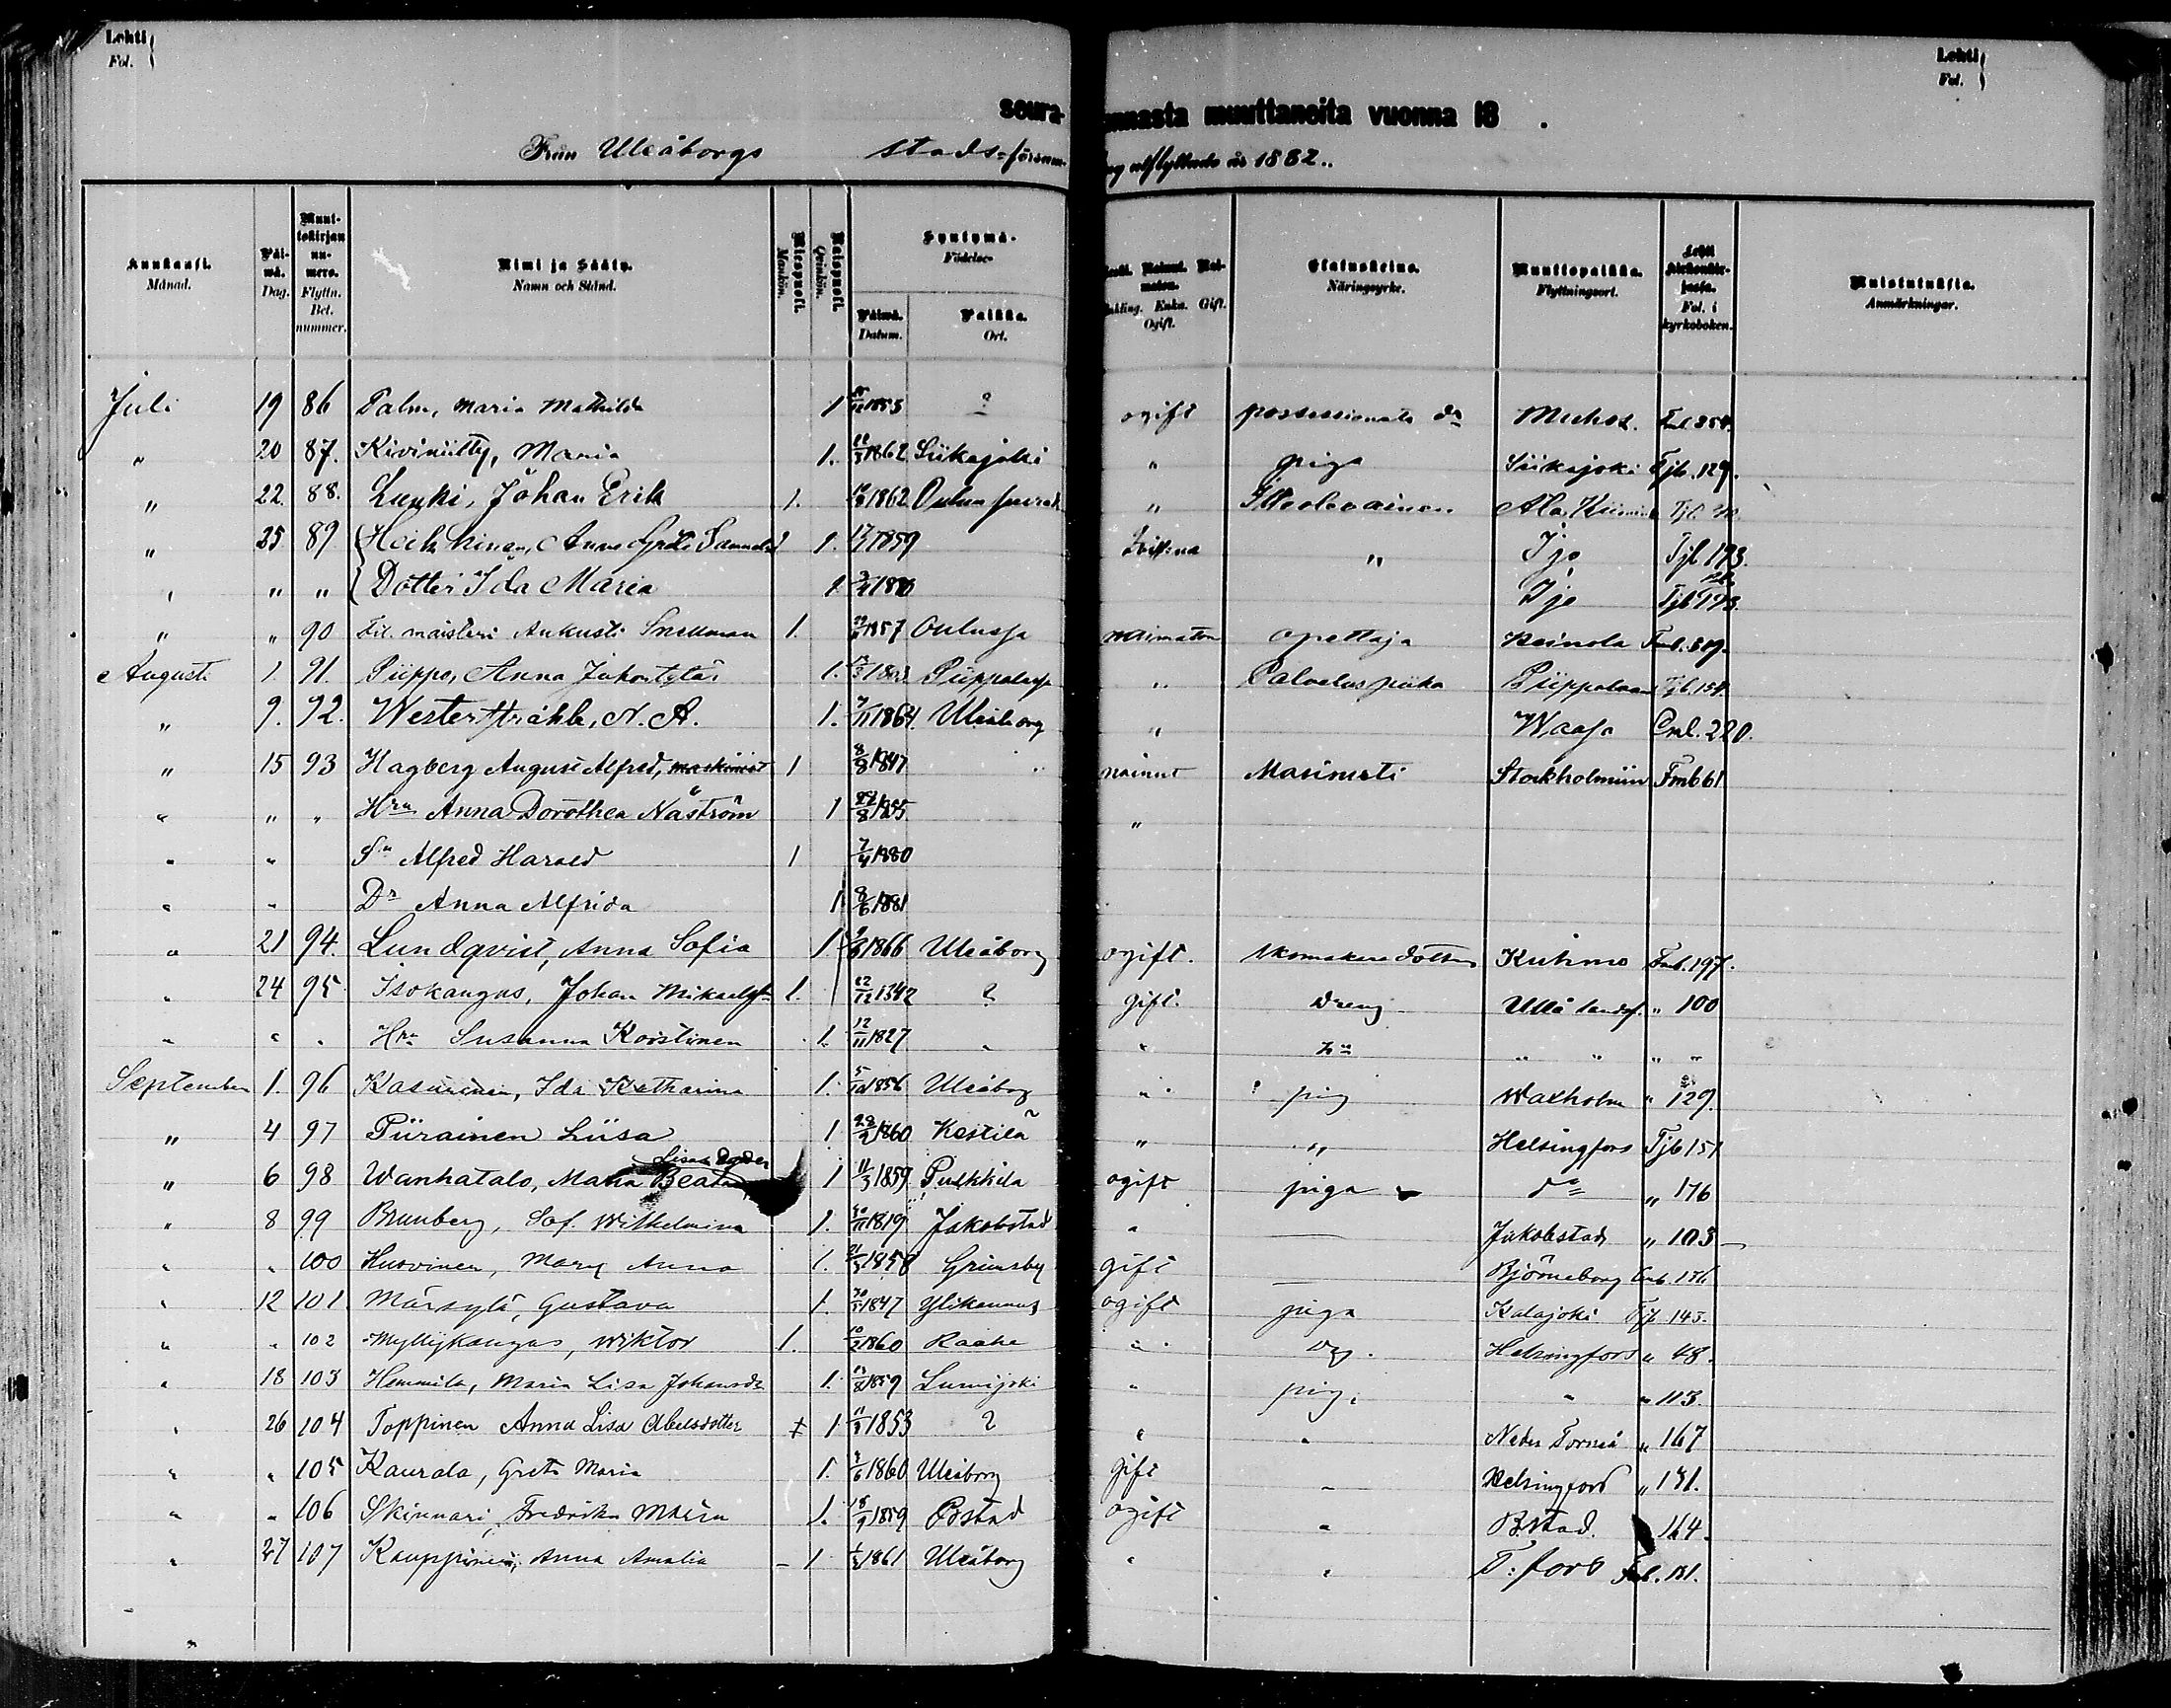 Lehti
Fol.
Lehti
Fol.
seura- unnasta muuttaneita vuonna 18 .
Från Uleåborgs stads-försam- utflyttade år 1882.
Kuukausi. Månad.
Päi-wä. Dag.
Muut-tokirjan nu-mero. Flyttn. Bet. nummer.
Nimi ja Sääty. Namn och Stånd.
Miespuoli. Mankön.
Naispuoli. Qvinkön.
Syntymä- Födelse-
Päiwä. Datum.
Paikka. Ort.
Enka. Gift. Ogift.
Elatuskeino. Näringsyrke.
Muuttopaikka. Flyttningsort.
Lehti kirkonkir-jassa. Fol. i kyrkoboken.
Muistutuksia. Anmärkningar.
Juli 19 86 Palm, Maria Mathilda 1 1853 ? ogift possessionats dr Muhos. 354.
" 20 87. Kiviniitty, Maria 1. 1862 Siikajoki " piga Siikajoki Tjb. 129.
" 22. 88. Luuki, Johan Erik 1. 1862 Oulun " Itsellinen Ala Kiimink
" 25 89 Heikkinen, Anna Greta Samuelsd 1. 1859 " Ijo Tjb 193.
" " " Dotter Ida Maria 1 Ijo Tjb 193.
" " 90 Fil. maisteri Aukusti Snellman 1. 1857 Oulussa naimaton opettaja Heinola Fmb. 319.
Augusti 1. 91. Piippo, Anna Juhontytär 1. Piippola " Palvelus piika Piippolaan Tjb. 154.
" 9. 92. Westerstråhle, N. A. 1. 7/11 1864. Uleåborg " Waasa 220.
" 15 93 Hagberg August Alfred, maskinist 1 8/8 1847 nainut Masinisti Stockholmiin Fmb 61
" " " Hru Anna Dorothea Näström 1 22/8 1855 "
" " Sn Alfred Harald 1 7/4 1880
" " Dr Anna Alfrida 1 8/6 1881
" 21 94. Lundqvist, Anna Sofia 1. 1866 Uleåborg ogift. skomakare dotter Kuhmo Fmb. 197.
" 24 95. Isokangas, Johan Mikaelss 1. 22/12 1842 ? gift. dreng Uleå landsf. " 100
" " " Hru Susanna Korstinen 1. 12/11 1827 " " " " " "
September 1. 96 Kasurinen, Ida Katharina 1. 5/10 1856 Uleåborg " pig Waxholm " 129.
" 4 97 Piirainen Liisa 1 1860 Kestilä " " Helsingfors Tjb 151
" 6 98 Wanhatalo, Maria Beata Lisa 1 11/3 1859 Pulkkila ogift piga do " 176
" 8 99 Brunberg, Sof. Wilhelmina 1. 1819 Jakobstad " — Jakobstad " 103
" " 100 Huovinen, Mary Anna 1. 21/3 1858 Grimsby gift — Björneborg 136
" 12 101 Märsylä, Gustava 1. 1847 Ylikannus ogift piga Kalajoki Tjb 145.
" " 102 Myllykangas, Wiktor 1. 10/2 1860 Raahe " Dg. Helsingfors " 48.
" 18 103 Hemmila, Maria Lisa Johansdr 1. 13/8 1859 Lumijoki " pig. " " 113.
" 26 104 Toppinen Anna Lisa Abelsdotter 1 1853 ? " " Neder Torneå " 167
" " 105 Kaurala, Greta Maria 1. 1860 Uleåborg gift " Helsingfors " 131.
" " 106 Skinnari, Fredrika Maria 1. 18/9 1859 Bstad ogift " B.stad. 164.
" 27 107 Kauppinen, Anna Amalia 1 1861 Uleåborg " " T:fors 131.